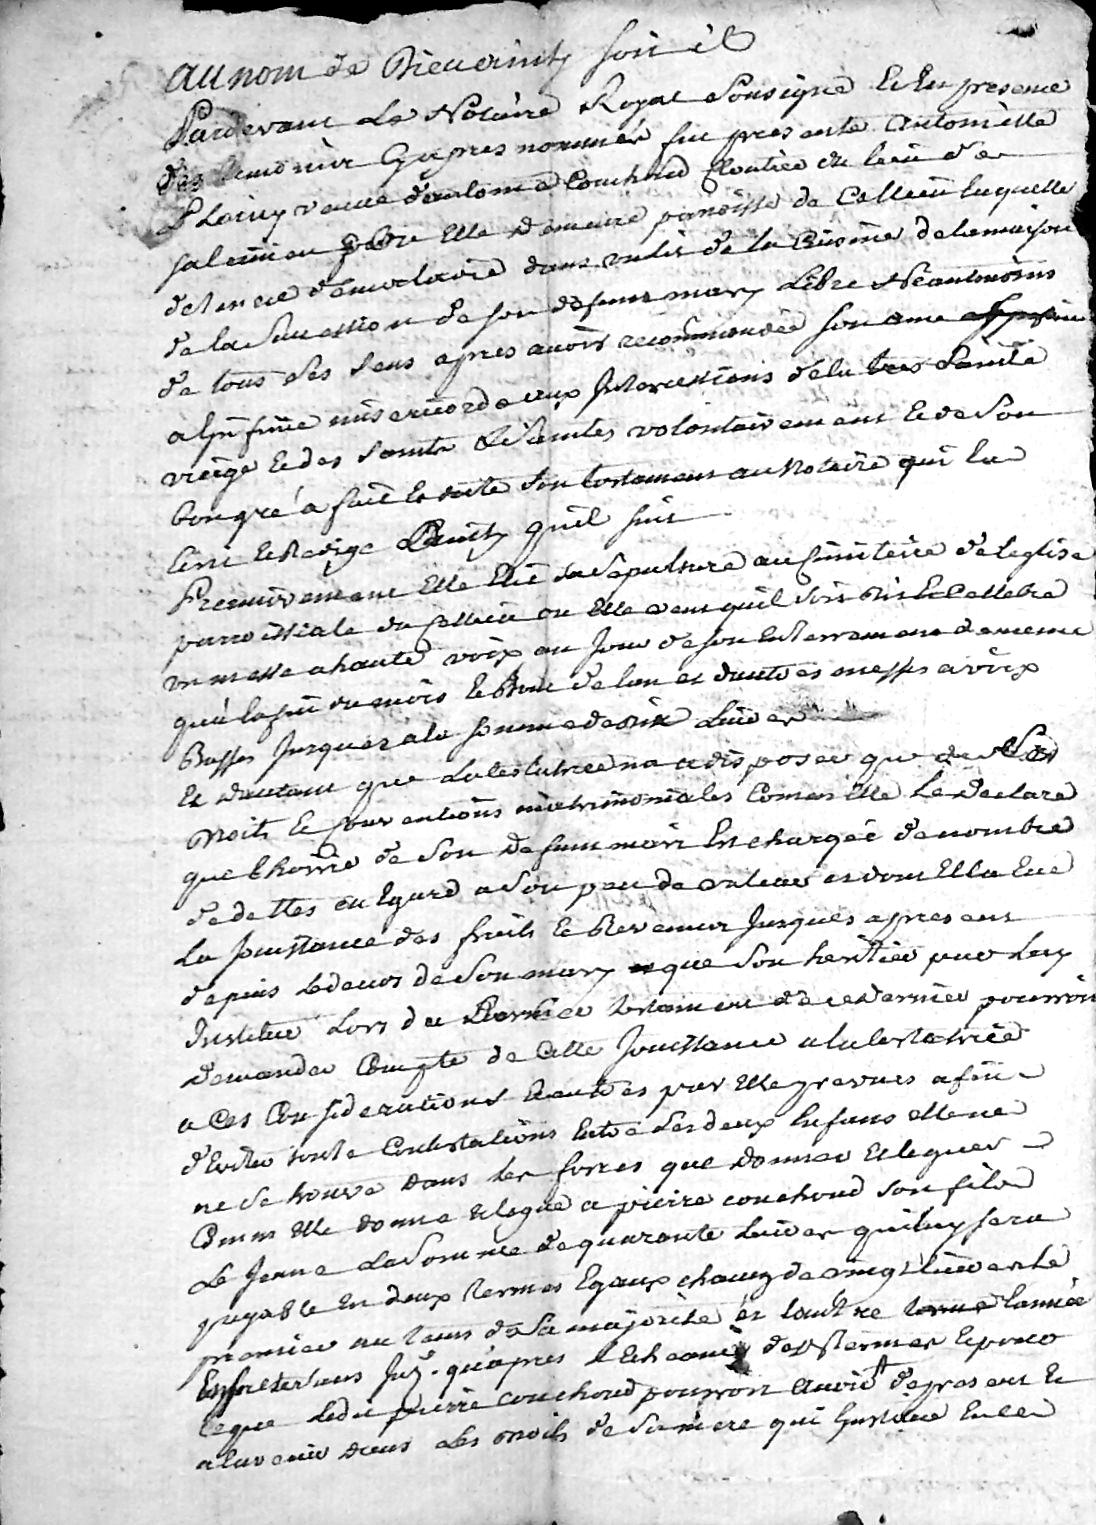 au nom de Dieu ainsy soit il
Pardevant Le Notaire Royal Sousigné Et En presence
des temoins Cy apres nommés fut presente Antoinette
veuve d'antoine Couchoud Cloutier du lieu de
ou Elle Demeure paroisse de Cellieu laquelle
detenue de maladie dans un lit de la Cuisine de la maison
de la Succession de son defunt mary Libre Neantmoins
de tous Ses Sens apres avoir recommandée son ame
a l'infinie misericorde aux Intercessions de la tres Sainte
vierge Et des Saints Et Saintes volontairement Et de Son
bon gré a fait Et dicté Son testament au Notaire qui la
Ecrit Et Redigé Ainsy quil suit
Premierement Elle Elit Sa Sepulture au Cimitiere de l'eglise
parroissiale du Cellieu ou Elle veut quil Soit dit Et Cellebré
un messe a haute voix au Jour de son Enterrement de meme
qu'a la fin du mois Et Bout de lan et d'autres messes a voix
Basses Jusques a la somme de six Livres
Et D'autant que La testatrice n'a a disposer que de Ses
Droits Et Conventions matrimoniales Comme Elle Le Declare
que l'hoirie de Son Defunt mari Est chargée de nombre
de dettes Eu Egard a Son peu de valeur et dont Elle a Eue
La Jouissance des fruits Et Revenus Jusques a present
depuis Le deces de Son mary que Son heritier par Luy
Institué Lors du Dernier testament de ce Dernier pourroit
Demander Compte de Cette Jouissance a la testatrice
a Ces Considerations Et autres par Elle prevues afin
d'Eviter toute Contestations Entre Ses deux Enfans Elle ne
ne Se trouve Dans les forces que Donner Et leguer
Comme Elle donne Et legue a pierre couchoud son fils
Le Jeune La Somme de quarante Livres qui luy sera
payable En deux termes Egaux chacun de vingt Livres Le
premier au tems de Sa majorité et l'autre terme l'année
Ensuite sans Jnt. qu'apres L'Echeance des termes Et pour
ce que Ledit pierre couchoud pourroit avoir de present Et
a l'avenir Dans Les Droits de Sa mere qui l'institue En ce